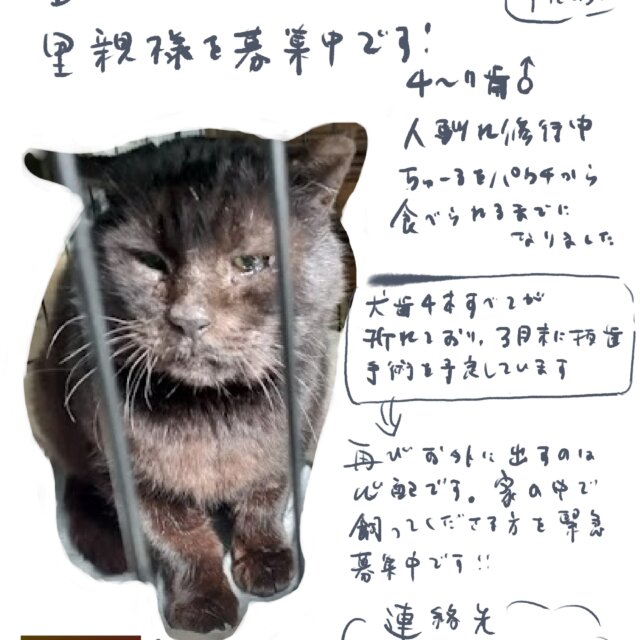 里親様を募集中です!
4〜7歳♂
人馴れ修行中
ちゅ〜るをパウチから
食べられるまでに
なりました
犬歯4本すべてが
折れており、3月末に抜歯
手術を予定しています
再びお外に出すのは
心配です。家の中で
飼ってくださる方を緊急
募集中です!!
連絡先